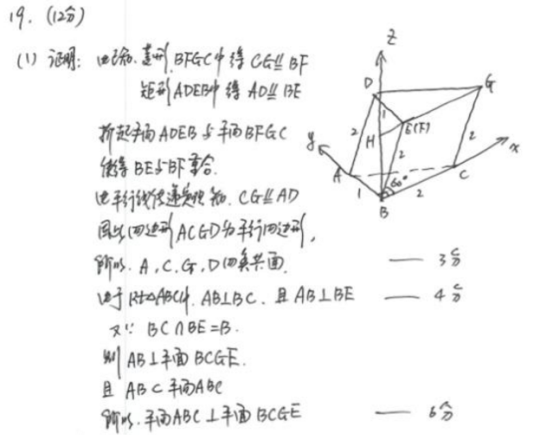 19. (12分)
(1) 证明: 由已知, 菱形 BFGC中 得 CG∥BF
矩形 ADEB中 得 AD∥BE
折起平面 ADEB 与平面 BFGC
使得 BE与BF重合.
由平行线传递定理知. CG∥AD
因此四边形 ACGD为平行四边形,
所以. A, C, G, D四点共面. — 3分
由于 Rt△ABC中. AB⊥BC. 且 AB⊥BE — 4分
又∵ BC∩BE=B.
则 AB⊥平面 BCGE.
且 AB⊂平面ABC
所以. 平面ABC⊥平面 BCGE — 6分
z
D
G
1
y
2
H
E(F)
2
2
x
A
C
60°
1
2
B